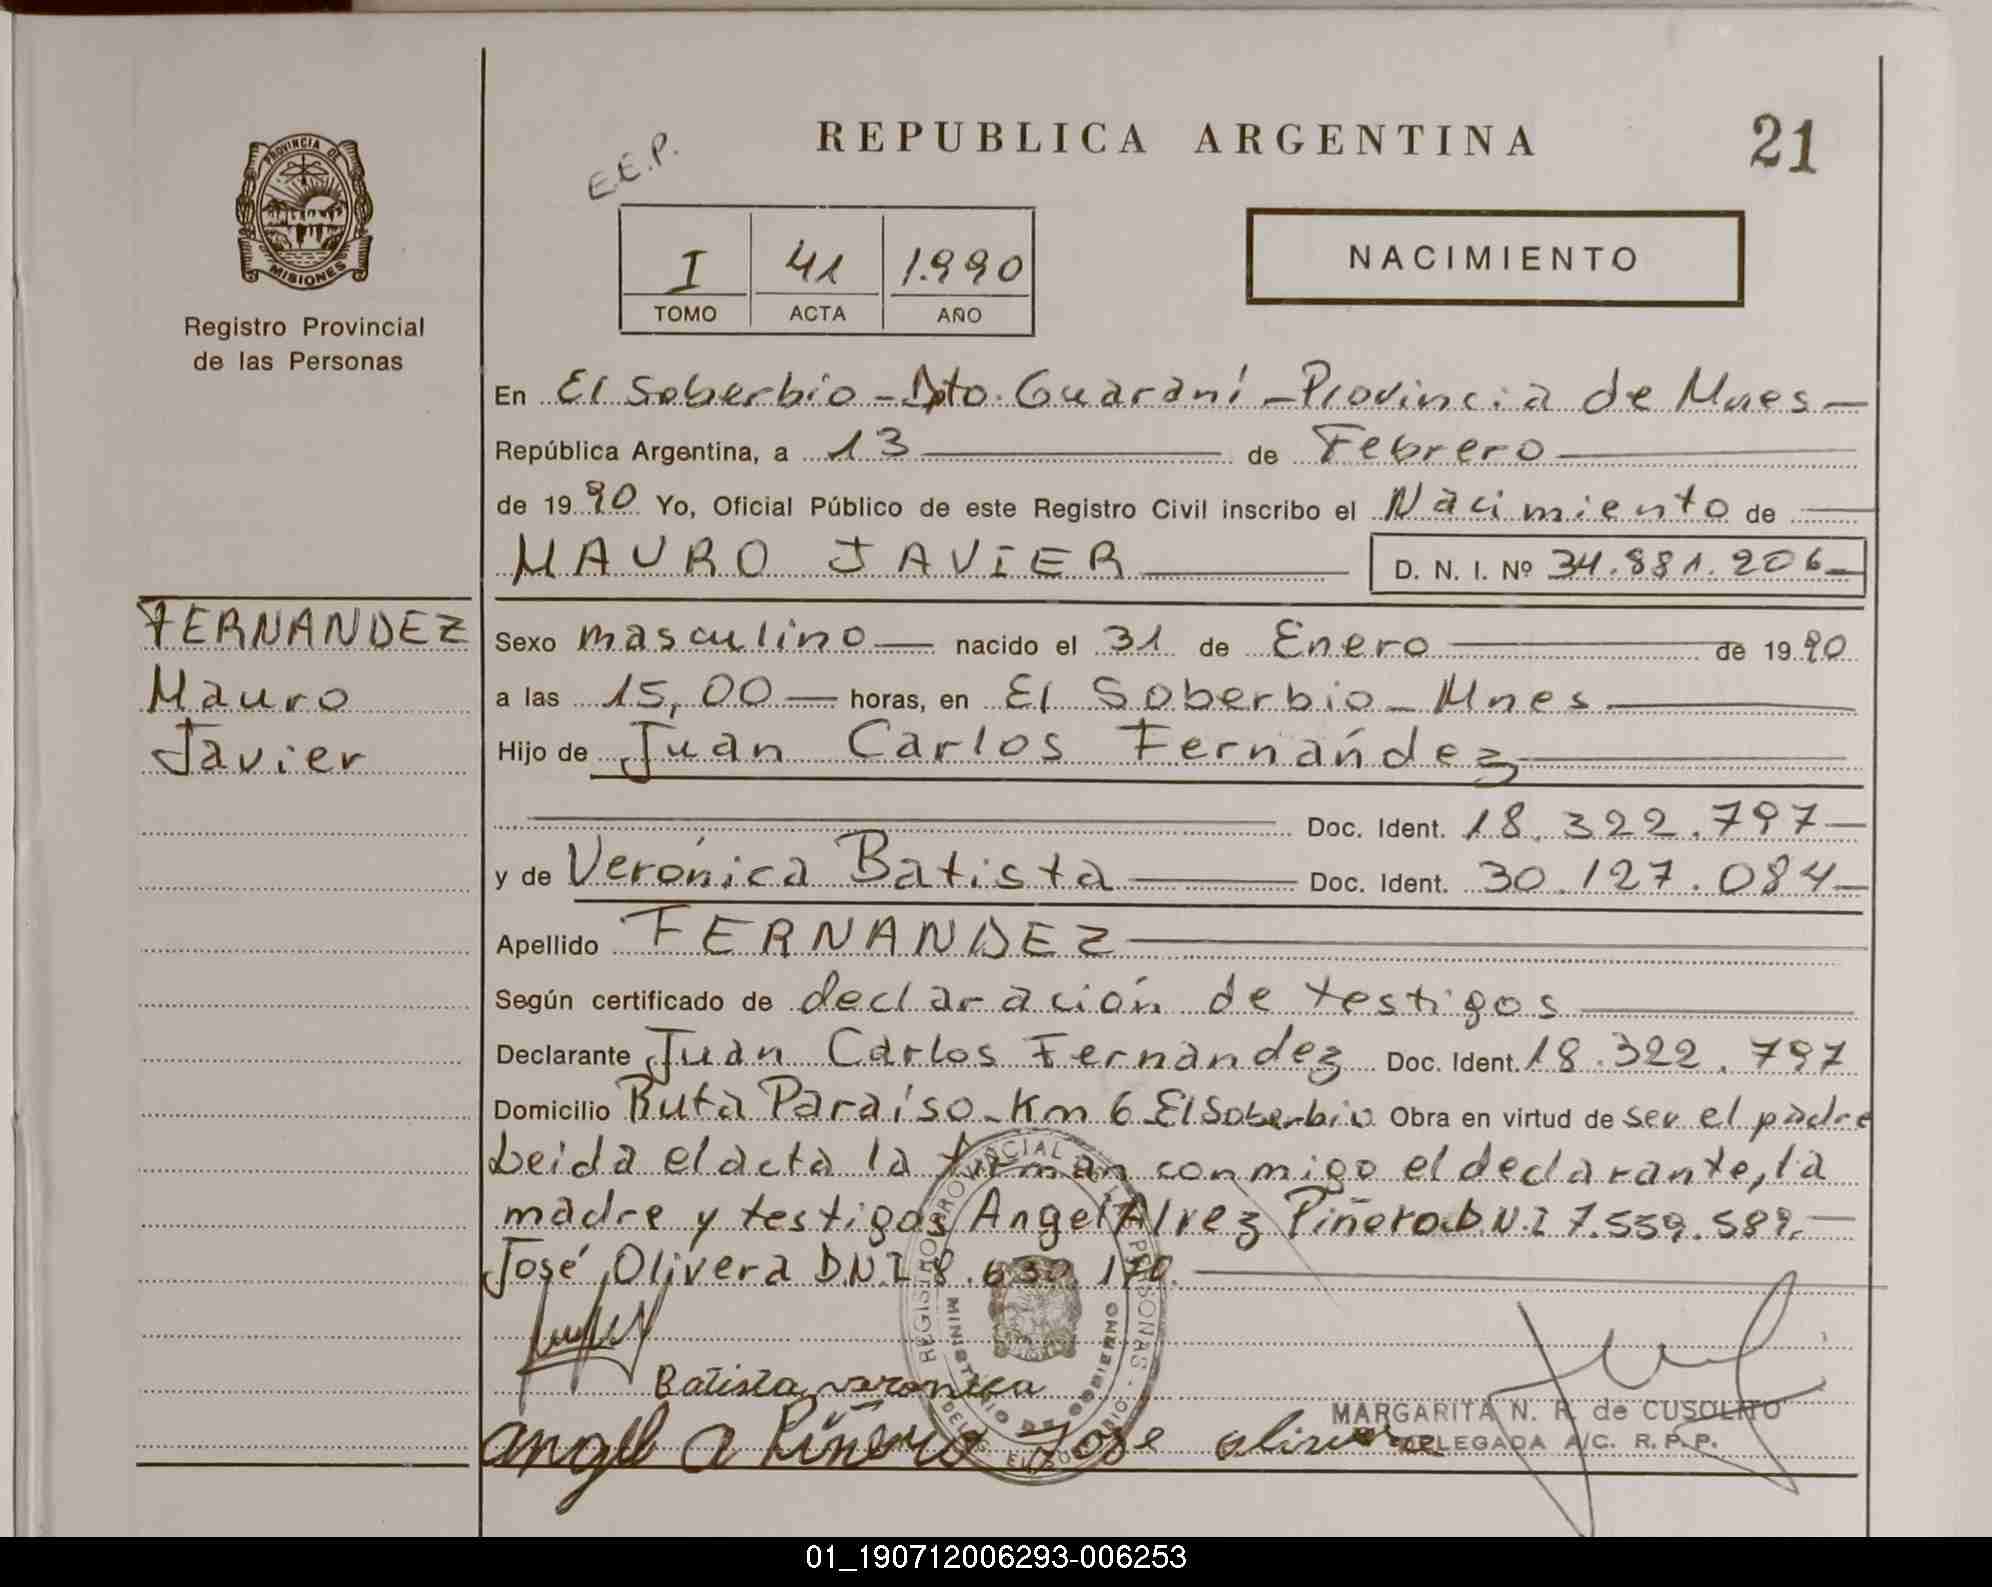 REPUBLICA ARGENTINA
21
E.E.P.
PROVINCIA DE
MISIONES
Registro Provincial
de las Personas
I 41 1.990
TOMO ACTA AÑO
NACIMIENTO
En El Soberbio - Dto. Guaraní - Provincia de Mnes -
República Argentina, a 13 de Febrero
de 19 90 Yo, Oficial Público de este Registro Civil inscribo el Nacimiento de
MAURO JAVIER D. N. I. Nº 34.881.206
FERNANDEZ
Mauro
Javier
Sexo masculino nacido el 31 de Enero de 19 90
a las 15,00 horas, en El Soberbio - Mnes
Hijo de Juan Carlos Fernández
Doc. Ident. 18.322.797
y de Verónica Batista Doc. Ident. 30.127.084
Apellido FERNANDEZ
Según certificado de declaración de testigos
Declarante Juan Carlos Fernandez Doc. Ident. 18.322.797
Domicilio Ruta Paraíso - Km 6 El Soberbio Obra en virtud de ser el padre
Leida el acta la firman conmigo el declarante, la
madre y testigos Angel Alvez Piñero D.N.I 7.539.589.
José Olivera DNI 8.630.170.
Batista veronica
angel a Piñero Jose olivera
REGISTRO PROVINCIAL DE LAS PERSONAS
MINISTERIO DE GOBIERNO
MARGARITA N. R. de CUSOLITO
DELEGADA A/C. R.P.P.
01_190712006293-006253